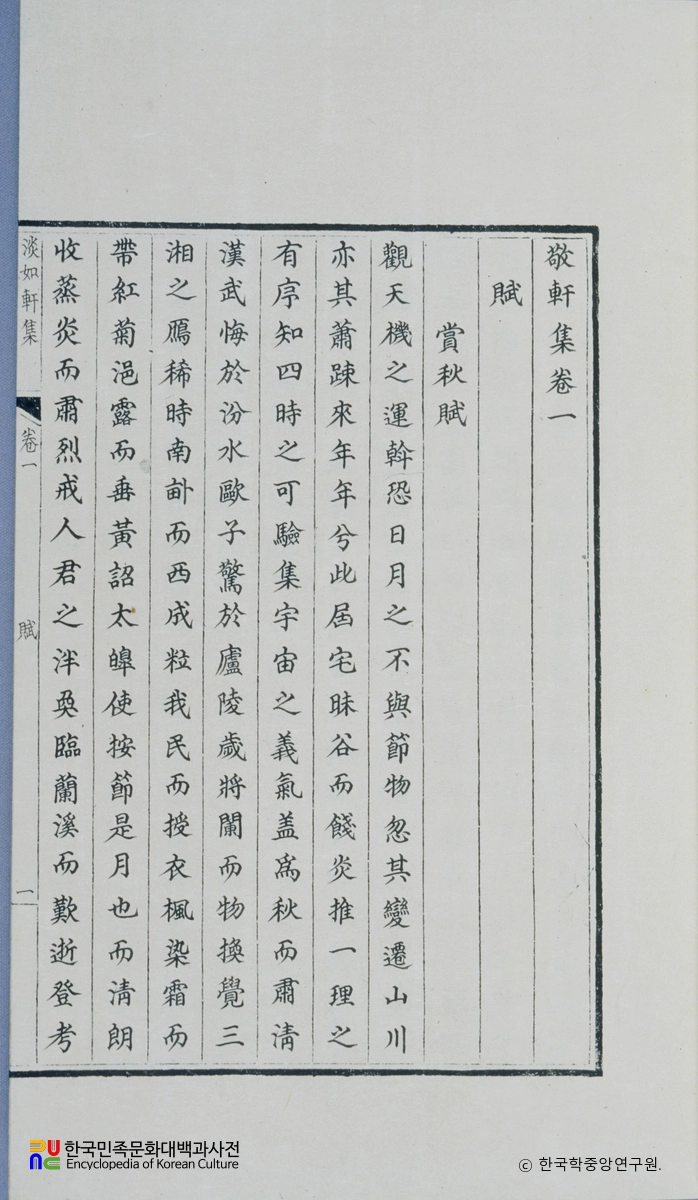 敬軒集卷一
賦
賞秋賦
觀天機之運斡恐日月之不與節物忽其變遷山川
亦其蕭踈來年年兮此居宅昧谷而餞炎推一理之
有序知四時之可驗集宇宙之義氣盖爲秋而肅淸
漢武悔於汾水歐子驚於廬陵歲將闌而物換覺三
湘之鴈稀時南訛而西成粒我民而授衣楓染霜而
帶紅菊浥露而垂黃詔太皥使按節是月也而淸朗
收蒸炎而肅烈戒人君之泮奐臨蘭溪而歎逝登考
淡如軒集 卷一 賦 一
한국민족문화대백과사전
Encyclopedia of Korean Culture
© 한국학중앙연구원.